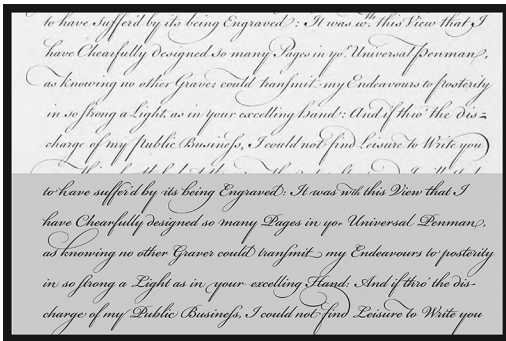 to have Suffer'd by its being Engraved: It was wth this View that I
have Chearfully designed so many Pages in yor. Universal Penman,
as knowing no other Graver could transmit my Endeavours to posterity
in so strong a Light, as in your excelling Hand: And if thro' the dis=
charge of my Public Business, I could not find Leisure to Write you
to have suffer'd by its being Engraved: It was with this View that I
have Chearfully designed so many Pages in yor Universal Penman,
as knowing no other Graver could tranſmit my Endeavours to posterity
in so ſtrong a Light as in your excelling Hand: And if thro' the dis-
charge of my Public Buſineſs, I could not find Leisure to Write you